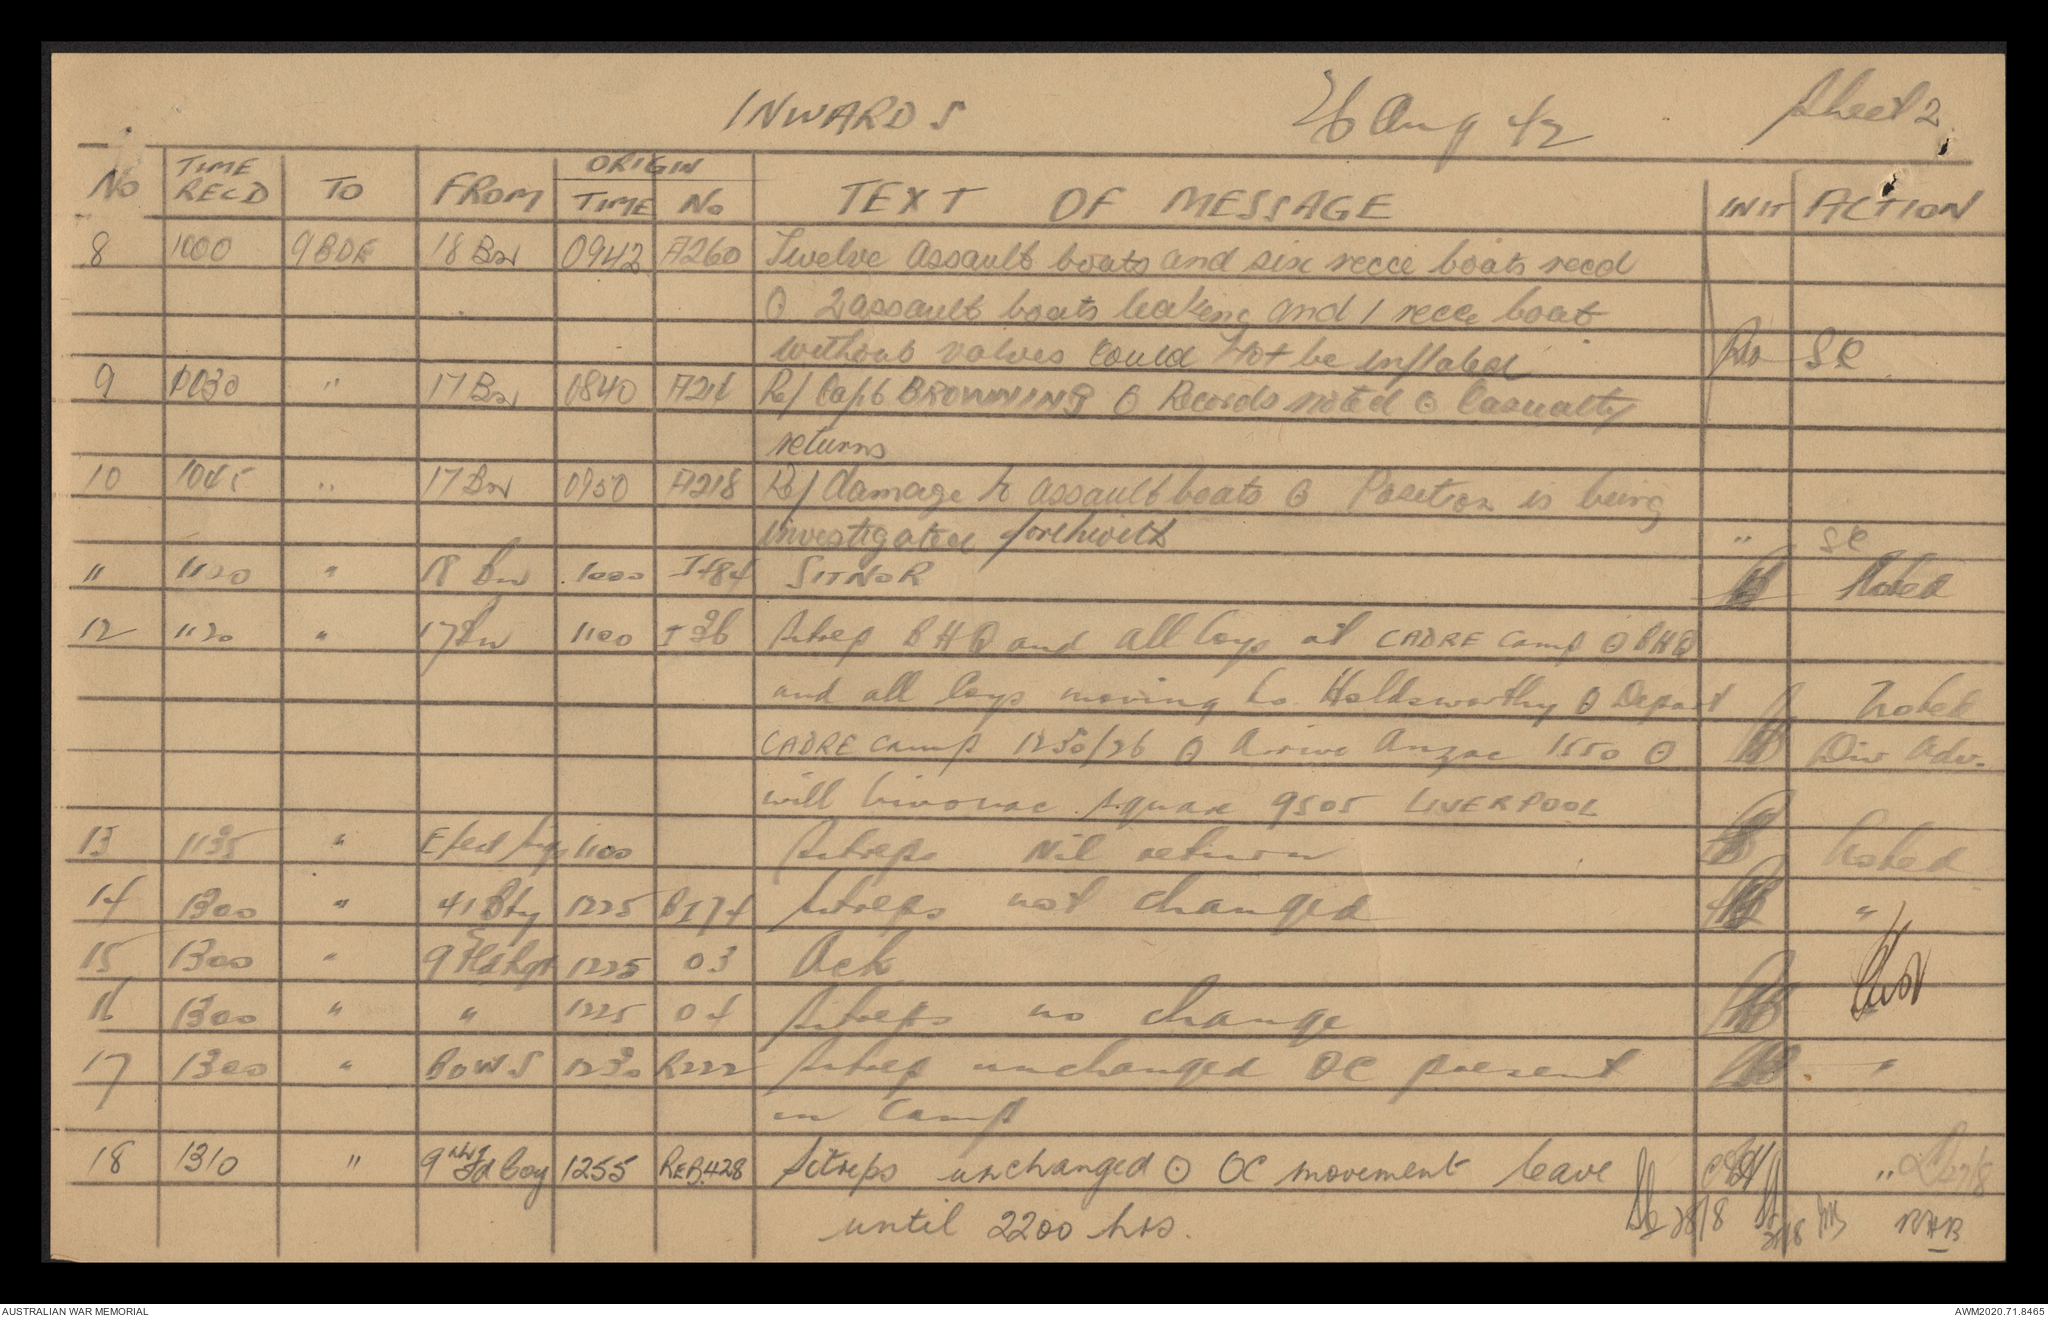 INWARDS 26 Aug 42 Sheet 2
No TIME RECD TO FROM ORIGIN TIME No TEXT OF MESSAGE INIT ACTION
8 1000 9 BDE 18 Bn 0942 A260 Twelve assault boats and six recce boats recd
⊙ 2 assault boats leaking and 1 recce boat
without valves could not be inflated SC
9 1030 " 17 Bn 0840 A216 Re/ Capt BROWNING ⊙ Records noted ⊙ Casualty
returns
10 1045 " 17 Bn 0950 A218 Re/ damage to assault boats ⊙ Position is being
investigated forthwith " SC
11 1120 " 18 Bn 1000 I484 SITNOR Noted
12 1120 " 17 Bn 1100 Sitrep BHQ and all Coys at CADRE Camp ⊙ BHQ
and all Coys moving to Holdsworthy ⊙ Depart Noted
CADRE camp 1230/26 ⊙ Arrive Anzac 1550 ⊙ Div Adv.
will bivouac square 9505 LIVERPOOL
13 1135 " Sigs 1100 Sitreps Nil return Noted
14 1300 " 41 Bty 1225 BI74 Sitreps not changed "
15 1300 " 9 Fld Rgt 1225 03 Ack
16 1300 " " 1225 04 Sitreps no change
17 1300 " BOWS 1230 R222 Sitrep unchanged OC present "
in Camp
18 1310 " 9 Fd Coy 1255 REB.428 Sitreps unchanged ⊙ OC movement leave " 27/8
until 2200 hrs. 28/8
AUSTRALIAN WAR MEMORIAL AWM2020.71.8465